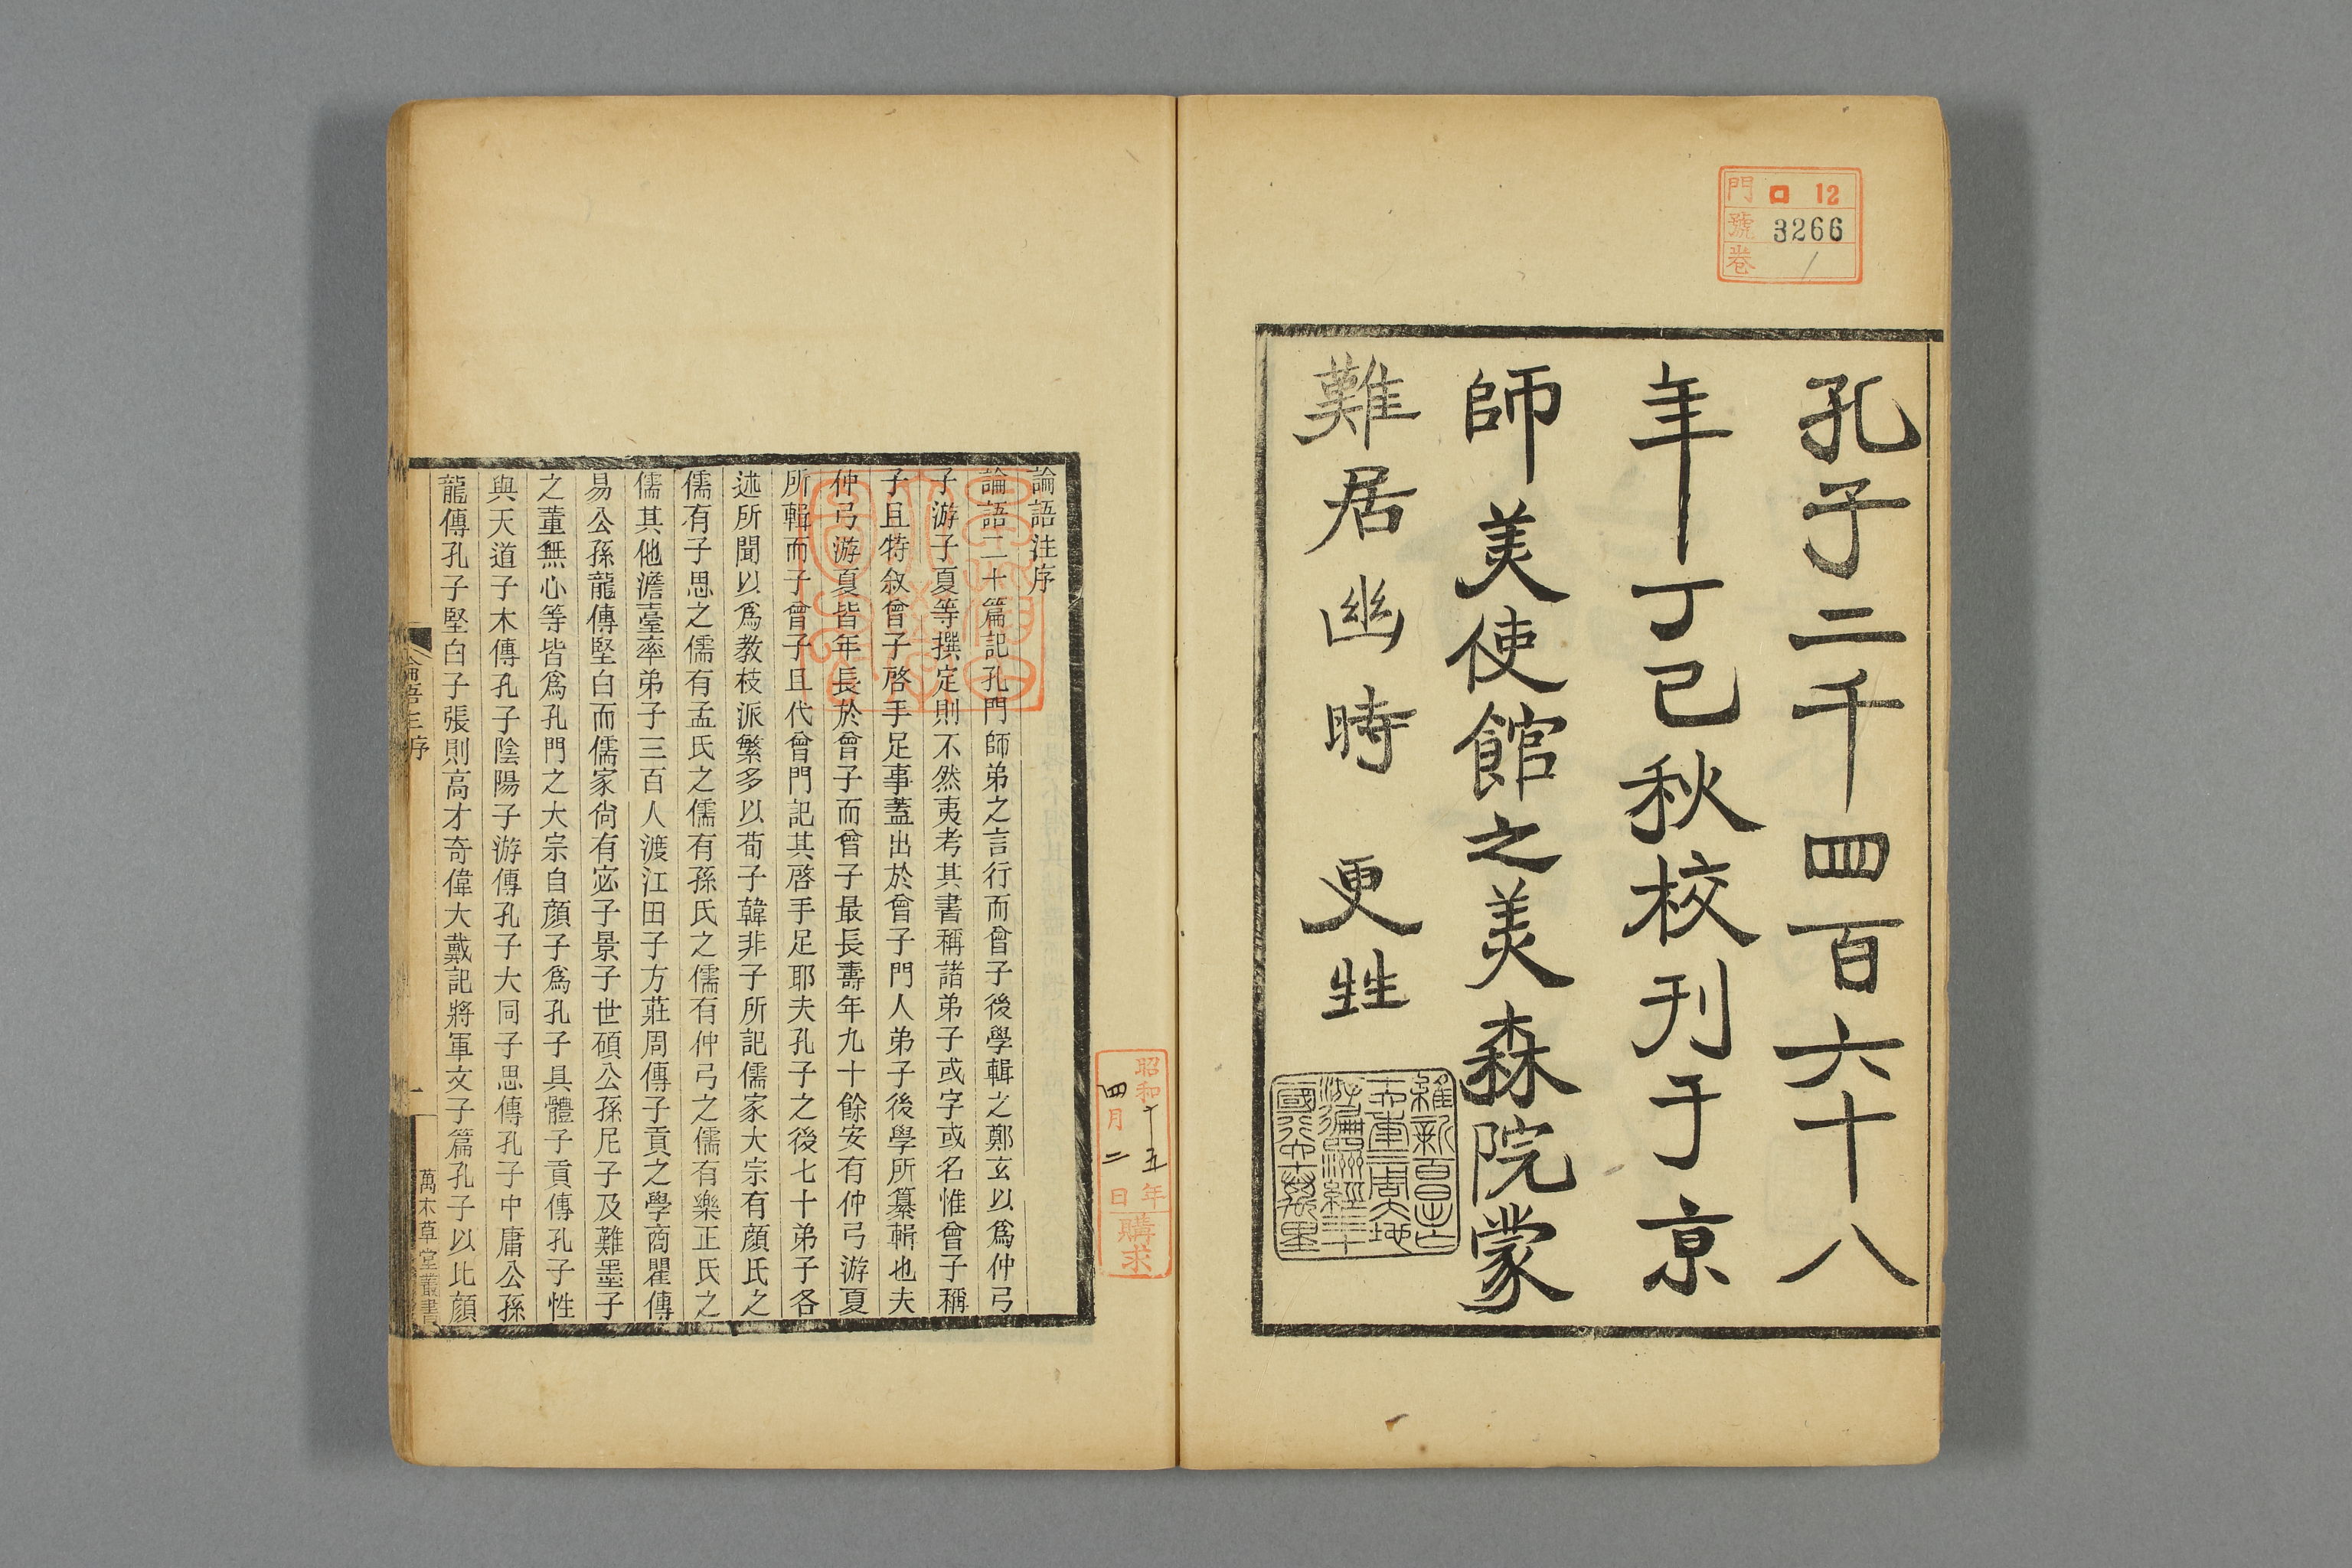 門 ロ 12
號 3266
卷 /
孔子二千四百六十八
年丁巳秋校刊于京
師美使館之美森院蒙
難居幽時 更甡
維新百日出亡
三周大地
遊遍四洲經三十
國行四十萬里
昭和十五年
四月二日
購求
論語注序
論語二十篇記孔門師弟之言行而曾子後學輯之鄭玄以爲仲弓
子游子夏等撰定則不然夷考其書稱諸弟子或字或名惟曾子稱
子且特敘曾子啓手足事蓋出於曾子門人弟子後學所纂輯也夫
仲弓游夏皆年長於曾子而曾子最長壽年九十餘安有仲弓游夏
所輯而子曾子且代曾門記其啓手足耶夫孔子之後七十弟子各
述所聞以爲教枝派繁多以荀子韓非子所記儒家大宗有顏氏之
儒有子思之儒有孟氏之儒有孫氏之儒有仲弓之儒有樂正氏之
儒其他澹臺率弟子三百人渡江田子方莊周傳子貢之學商瞿傳
易公孫龍傳堅白而儒家尙有宓子景子世碩公孫尼子及難墨子
之董無心等皆爲孔門之大宗自顏子爲孔子具體子貢傳孔子性
與天道子木傳孔子陰陽子游傳孔子大同子思傳孔子中庸公孫
龍傳孔子堅白子張則高才奇偉大戴記將軍文子篇孔子以比顏
論語注序
一
萬木草堂叢書